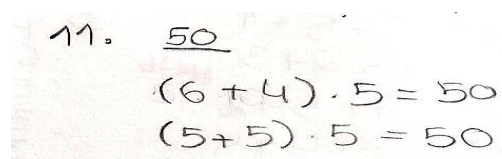 11. 50
(6+4) · 5 = 50
(5+5) · 5 = 50